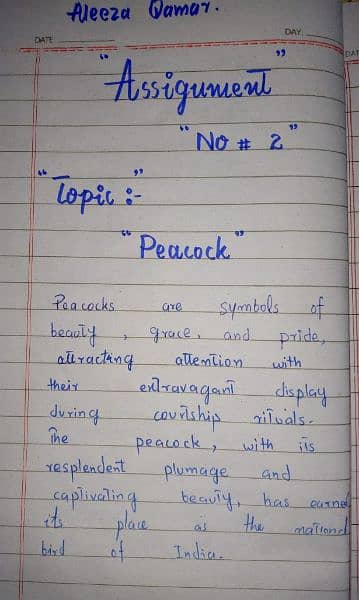 Aleeza Qamar.
DATE DAY
"Assigument"
"No # 2"
"Topic :-"
"Peacock"
Peacocks are symbols of
beauty, grace, and pride,
attracting attention with
their extravagant display
during courtship rituals.
The peacock, with its
resplendent plumage and
captivating beauty, has earned
its place as the national
bird of India.